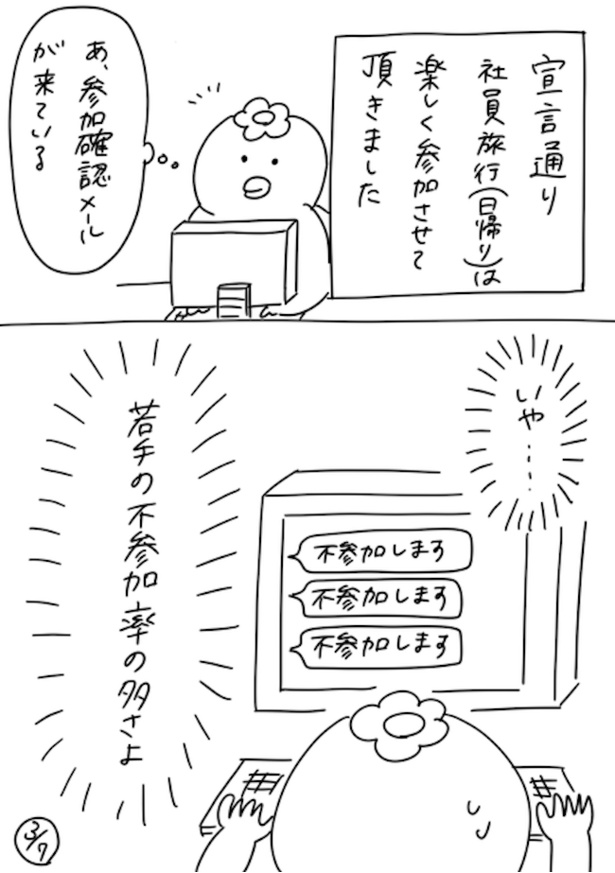 宣言通り
社員旅行(日帰り)は
楽しく参加させて
頂きました
あ、参加確認メール
が来ている
いや……
不参加します
不参加します
不参加します
若手の不参加率の多さよ
3/7